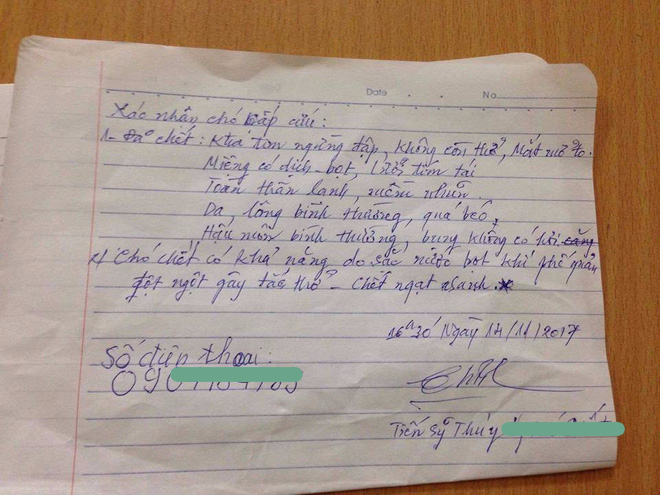 Date No
Xác nhận chó cấp cứu:
1- Đã chết: Khá tim ngừng đập, không còn thở, Mắt mở to.
Miệng có dịch bọt, lưỡi tím tái
Toàn thân lạnh, mềm nhũn.
Da, lông bình thường, quá béo,
Hậu môn bình thường, bụng không có hơi căng
Chó chết có khả năng do sắc nước bọt khí phế quản
đột ngột gây tắc thở - chết ngạt nhanh.
16h30 Ngày 14/11/2017
Số điện thoại:
090
Tiến sỹ Thú y